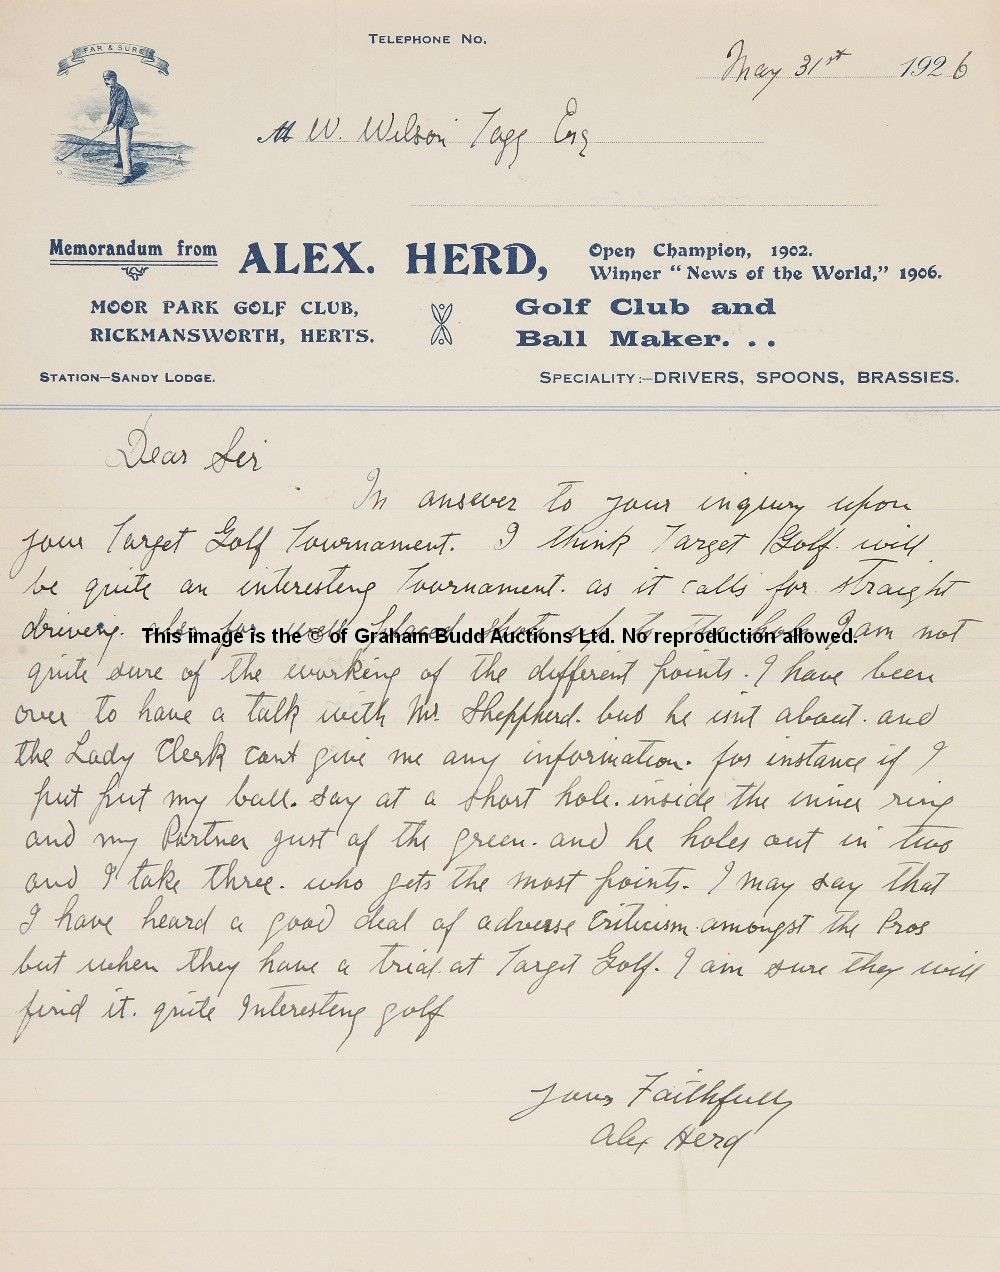 FAR & SURE
TELEPHONE NO.
May 31st 1926
M W. Wilson Tagg Esq
Memorandum from
ALEX. HERD,
Open Champion, 1902.
Winner "News of the World," 1906.
MOOR PARK GOLF CLUB,
RICKMANSWORTH, HERTS.
Golf Club and
Ball Maker. . .
STATION—SANDY LODGE.
SPECIALITY:—DRIVERS, SPOONS, BRASSIES.
Dear Sir
In answer to your inqury upon
your Target Golf Tournament. I think Target Golf will
be quite an interesting Tournament. as it calls for straight
driving. also for well placed shots up to the hole I am not
This image is the © of Graham Budd Auctions Ltd. No reproduction allowed.
quite sure of the working of the different points. I have been
over to have a talk with Mr. Sheppherd. but he isnt about. and
the Lady Clerk cant give me any information. for instance if I
put put my ball. say at a short hole. inside the inner ring
and my Partner just of the green. and he holes out in two
and I take three. who gets the most points. I may say that
I have heard a good deal of adverse Criticism amongst the Pros
but when they have a trial at Target Golf. I am sure they will
find it. quite Interesting golf
Yours Faithfully
Alex Herd